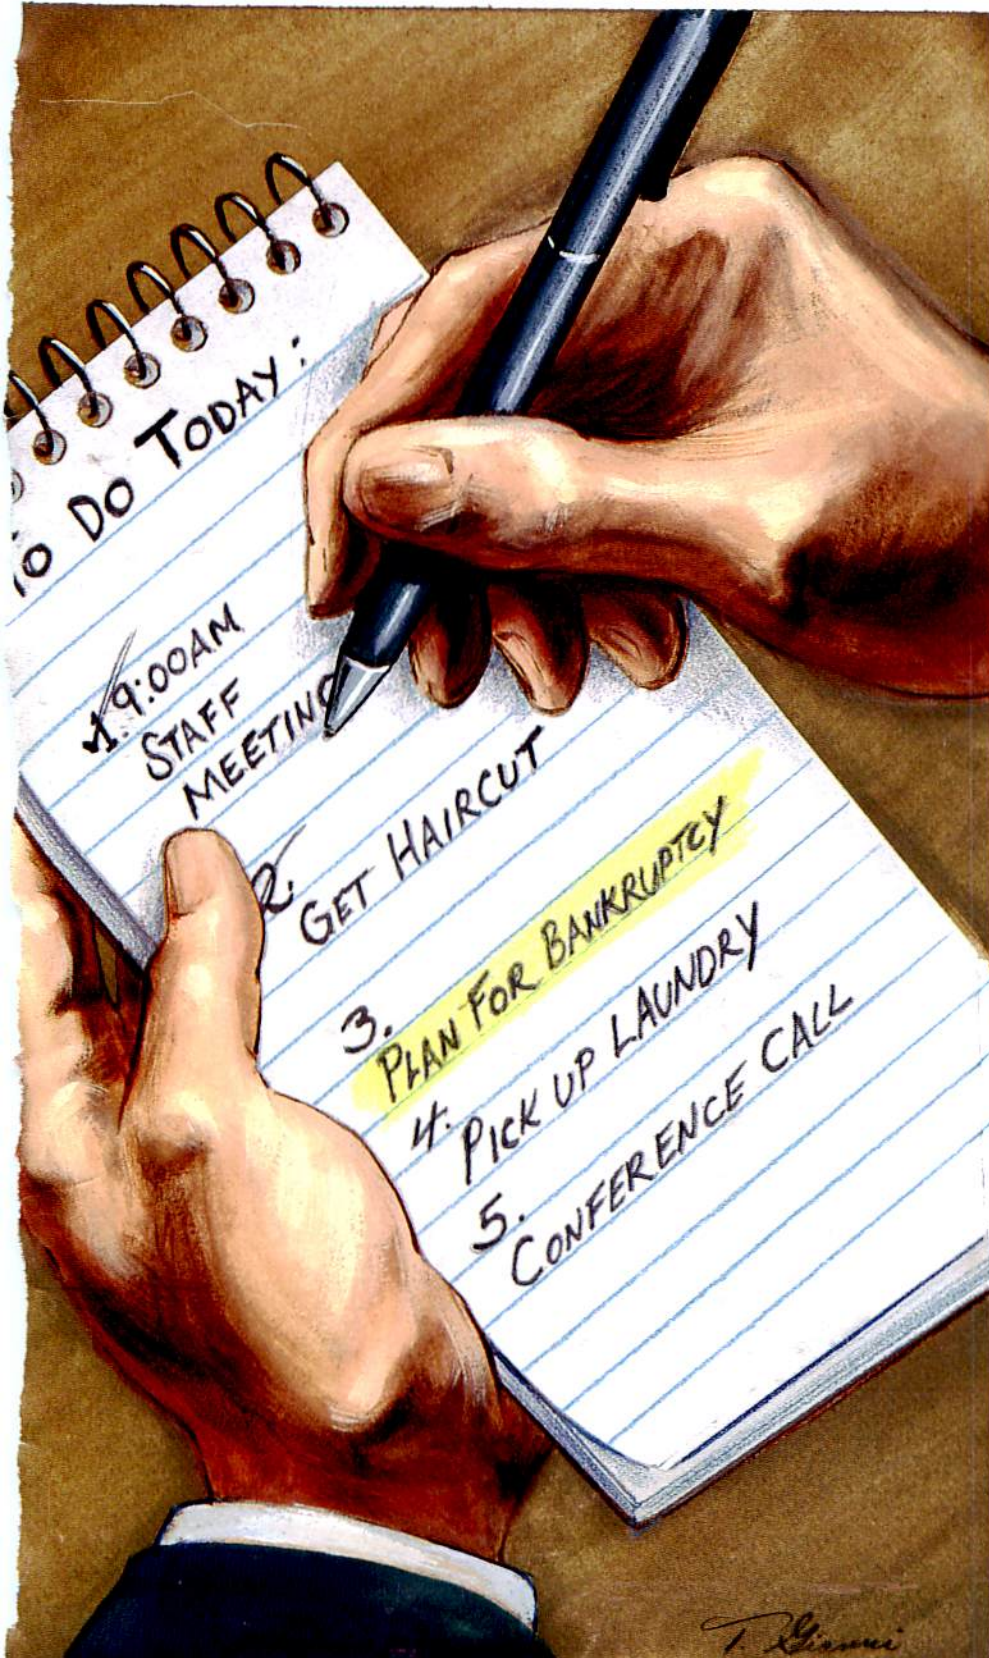 To Do Today:
1. 9:00AM
Staff
Meeting
2.
Get Haircut
3.
Plan For Bankruptcy
4.
Pick up Laundry
5.
Conference Call
T. Gianni